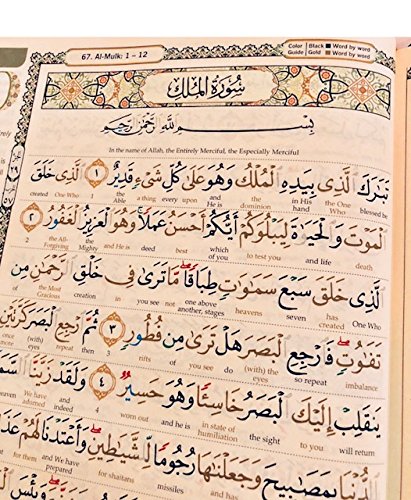 67. Al-Mulk: 1 – 12
Color Guide | Black Word by word
Gold Word by word
سُورَةُ المُلْكِ
بِسْمِ اللَّهِ الرَّحْمَٰنِ الرَّحِيمِ
In the name of Allah, the Entirely Merciful, the Especially Merciful
تَبَٰرَكَ الَّذِي بِيَدِهِ الْمُلْكُ وَهُوَ عَلَىٰ كُلِّ شَيْءٍ قَدِيرٌ ١ الَّذِي خَلَقَ
created One Who 1 the Able a thing every upon and He is the dominion in His hand the One Who blessed be
الْمَوْتَ وَالْحَيَوٰةَ لِيَبْلُوَكُمْ أَيُّكُمْ أَحْسَنُ عَمَلًا ۚ وَهُوَ الْعَزِيزُ الْغَفُورُ ٢
2 the All-Forgiving the Mighty and He is deed best which of you to test you and life death
الَّذِي خَلَقَ سَبْعَ سَمَٰوَٰتٍ طِبَاقًا ۖ مَّا تَرَىٰ فِي خَلْقِ الرَّحْمَٰنِ مِن
of the Most Gracious creation in you see not one above another, stages heavens seven has created One Who
تَفَٰوُتٍ ۖ فَارْجِعِ الْبَصَرَ هَلْ تَرَىٰ مِن فُطُورٍ ٣ ثُمَّ ارْجِعِ الْبَصَرَ كَرَّتَيْنِ
once (with) eyes repeat then 3 rifts of you see do (with) the eyes so repeat imbalance
يَنقَلِبْ إِلَيْكَ الْبَصَرُ خَاسِئًا وَهُوَ حَسِيرٌ ٤ وَلَقَدْ زَيَّنَّا
We have adorned and indeed 4 worn out and he is in state of humiliation the sight to you will return
الدُّنْيَا بِمَصَٰبِيحَ وَجَعَلْنَٰهَا رُجُومًا لِّلشَّيَٰطِينِ ۖ وَأَعْتَدْنَا لَهُمْ
for them and We have prepared for shaitans missiles and has